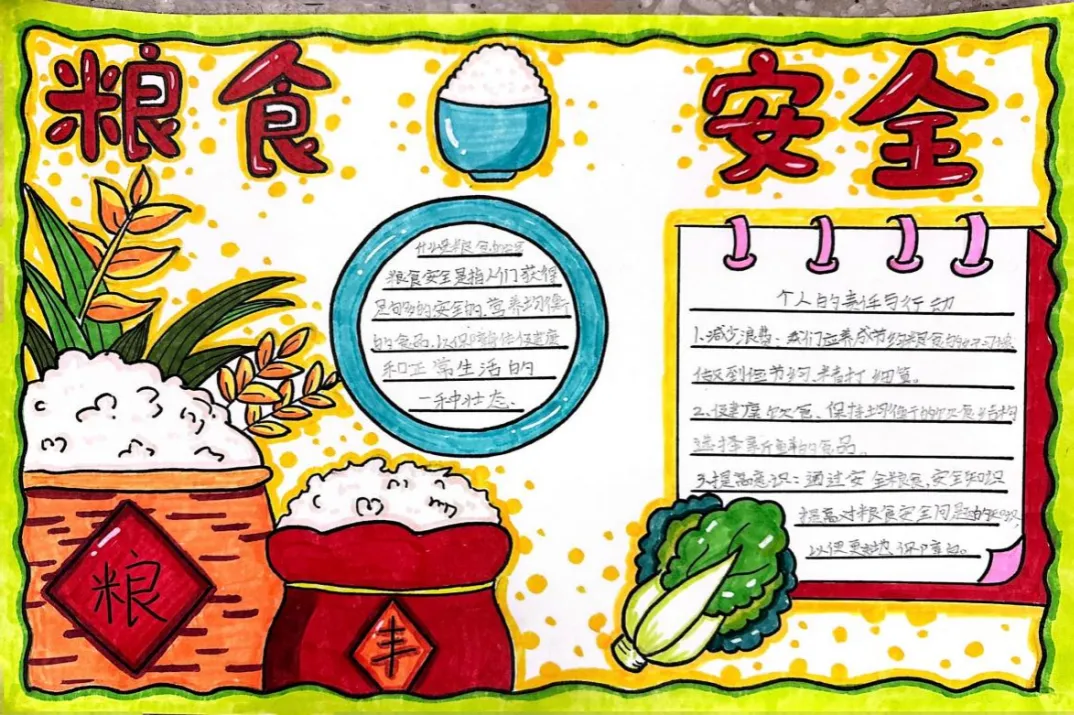 粮食安全
什么是粮食安全
粮食安全是指人们获得
足够多的安全的、营养均衡
的食品,以保障能健康
和正常生活的
一种状态、
粮
丰
个人的责任与行动
1、减少浪费:我们应养成节约粮食的好习惯
做到勤节约、精打细算。
2、健康饮食、保持均衡的饮食结构
选择新鲜的食品。
3、提高意识:通过安全粮食、安全知识
提高对粮食安全问题的
以便更 保障自。